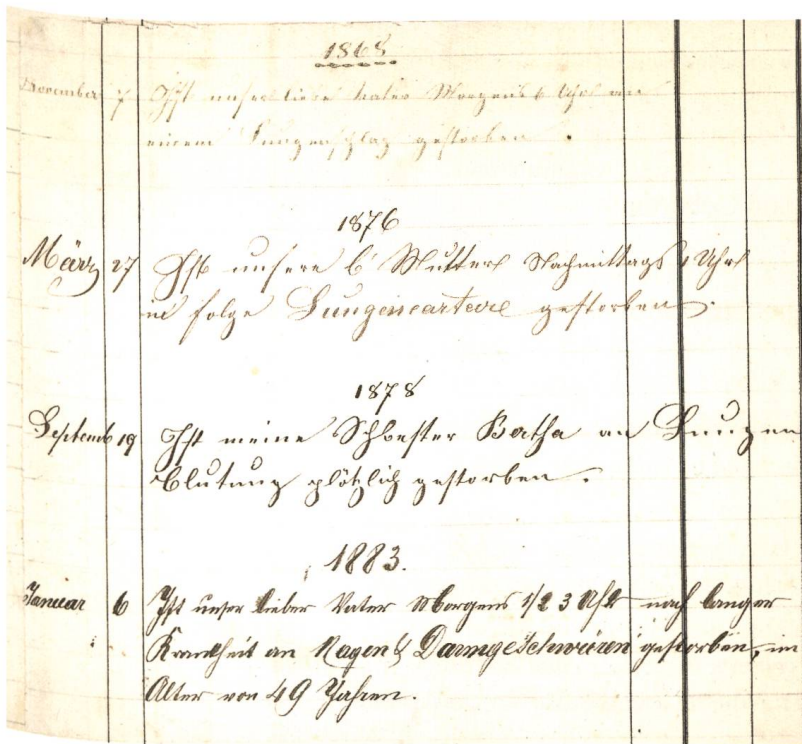 1868
November 7 Ist unser liebe Vater Morgens 6 Uhr an
einem Lungenschlag gestorben.
1876
März 27 Ist unsere l' Mutter Nachmittags 1 Uhr
in folge gestorben.
1878
Septemb 19 Ist meine Schwester Bertha an Lungen
Blutung plötzlich gestorben.
1883.
Januar 6 Ist unser lieber Vater Morgens 1/2 3 Uhr nach langer
Krankheit an Magen & Darmgeschwüren gestorben, im
Alter von 49 Jahren.